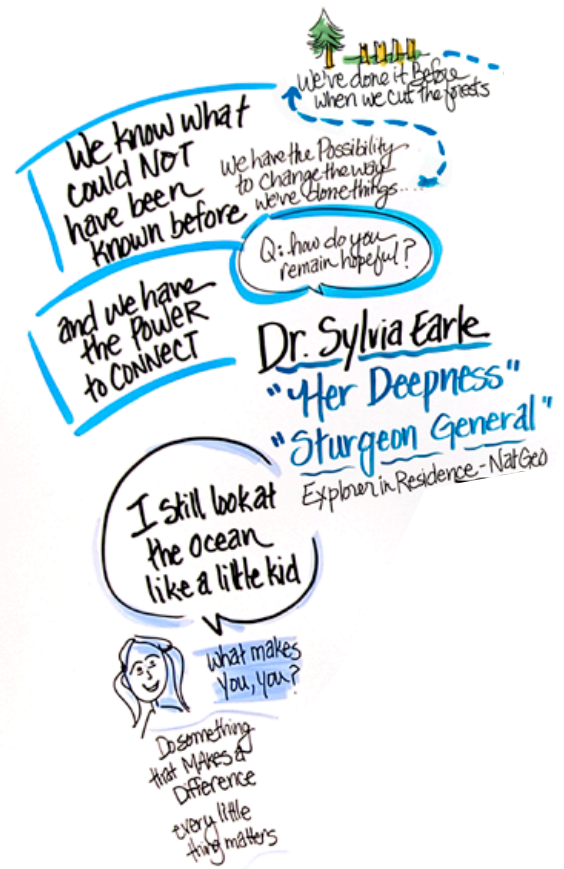 We've done it Before
when we cut the forests
We know what
could NOT
have been
known before
We have the Possibility
to change the way
we've done things...
Q: how do you
remain hopeful?
and we have
the POWER
to CONNECT
Dr. Sylvia Earle
"Her Deepness"
"Sturgeon General"
Explorer in Residence - Nat Geo
I still look at
the ocean
like a little kid
what makes
you, you?
Do something
that MAKES a
Difference
every little
thing matters